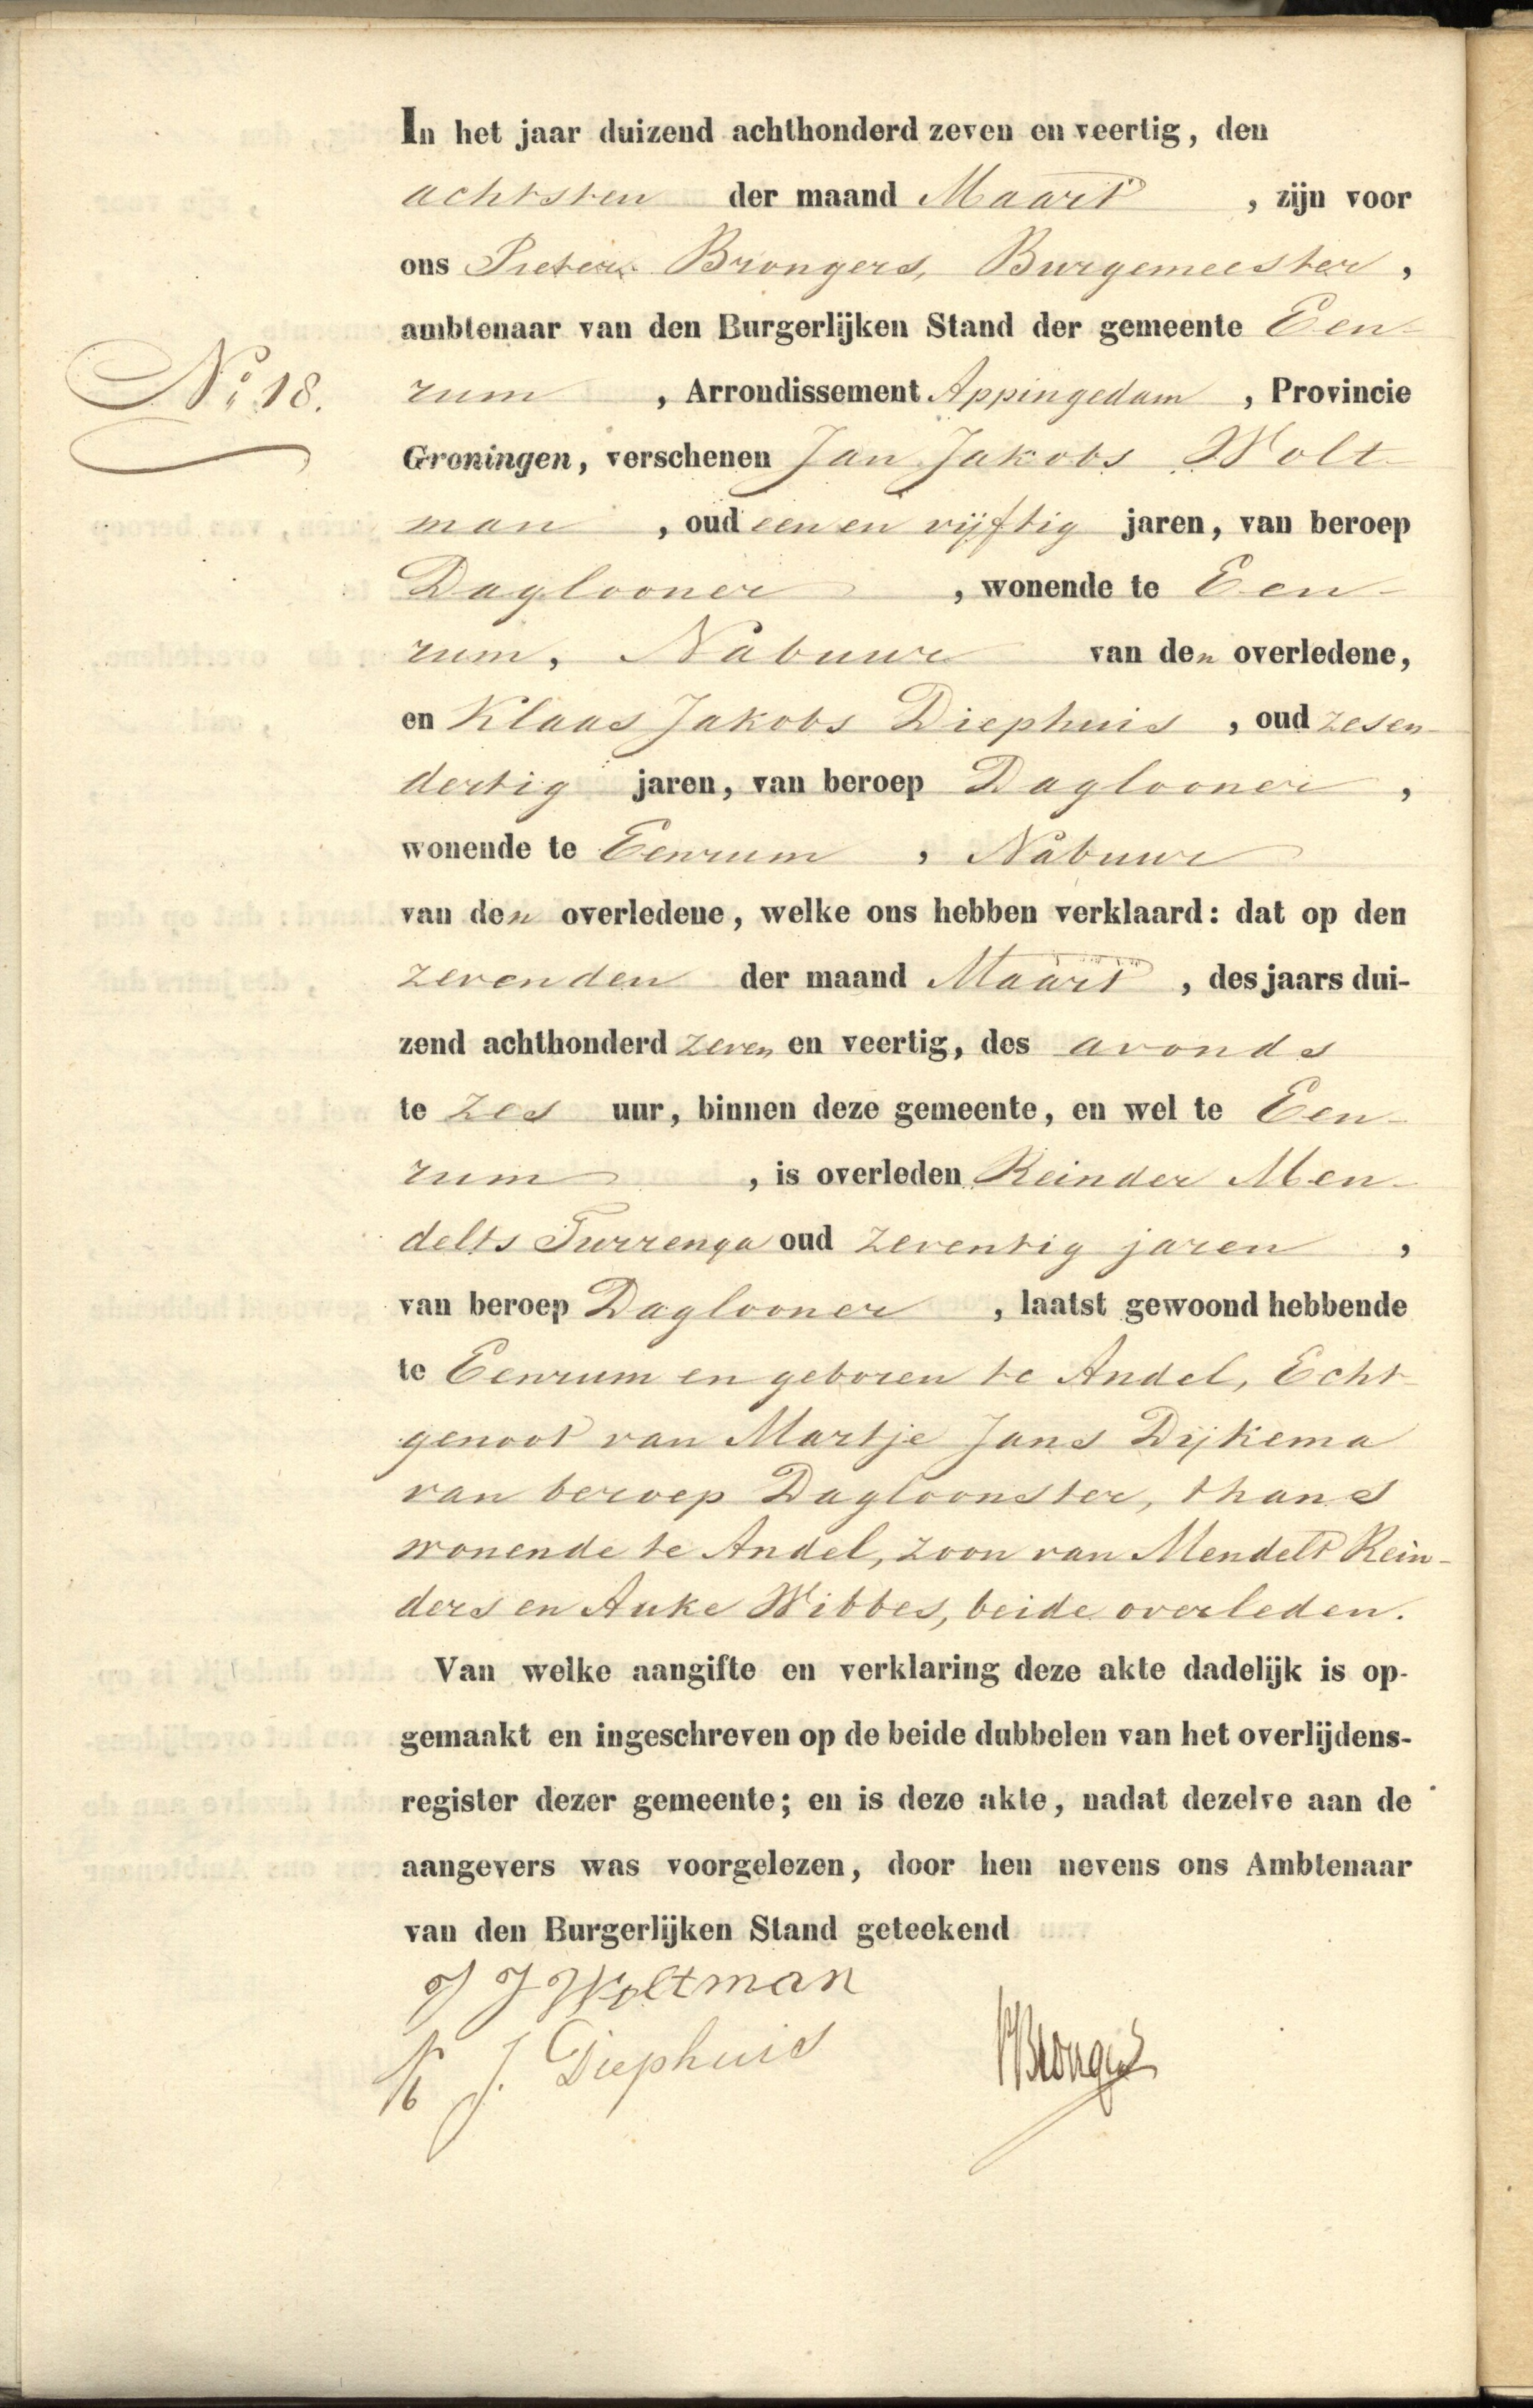 In het jaar duizend achthonderd zeven en veertig, den
achtsten der maand Maart, zijn voor
ons Pieter Brongers, Burgemeester,
ambtenaar van den Burgerlijken Stand der gemeente Een-
No. 18.
rum, Arrondissement Appingedam, Provincie
Groningen, verschenen Jan Jakobs Wolt-
man, oud een en vijftig jaren, van beroep
Daglooner, wonende te Een-
rum, Nabuur van den overledene,
en Klaas Jakobs Diephuis, oud zesen-
dertig jaren, van beroep Daglooner,
wonende te Eenrum, Nabuur
van den overledene, welke ons hebben verklaard: dat op den
zevenden der maand Maart, des jaars dui-
zend achthonderd zeven en veertig, des avonds
te zes uur, binnen deze gemeente, en wel te Een-
rum, is overleden Reinder Men-
delts Turrenga oud zeventig jaren,
van beroep Daglooner, laatst gewoond hebbende
te Eenrum en geboren te Andel, Echt-
genoot van Martje Jans Dijkema
van beroep Dagloonster, thans
wonende te Andel, zoon van Mendelt Rein-
ders en Auke Wibbes, beide overleden.
Van welke aangifte en verklaring deze akte dadelijk is op-
gemaakt en ingeschreven op de beide dubbelen van het overlijdens-
register dezer gemeente; en is deze akte, nadat dezelve aan de
aangevers was voorgelezen, door hen nevens ons Ambtenaar
van den Burgerlijken Stand geteekend
J J Woltman
K J. Diephuis
PBrongers